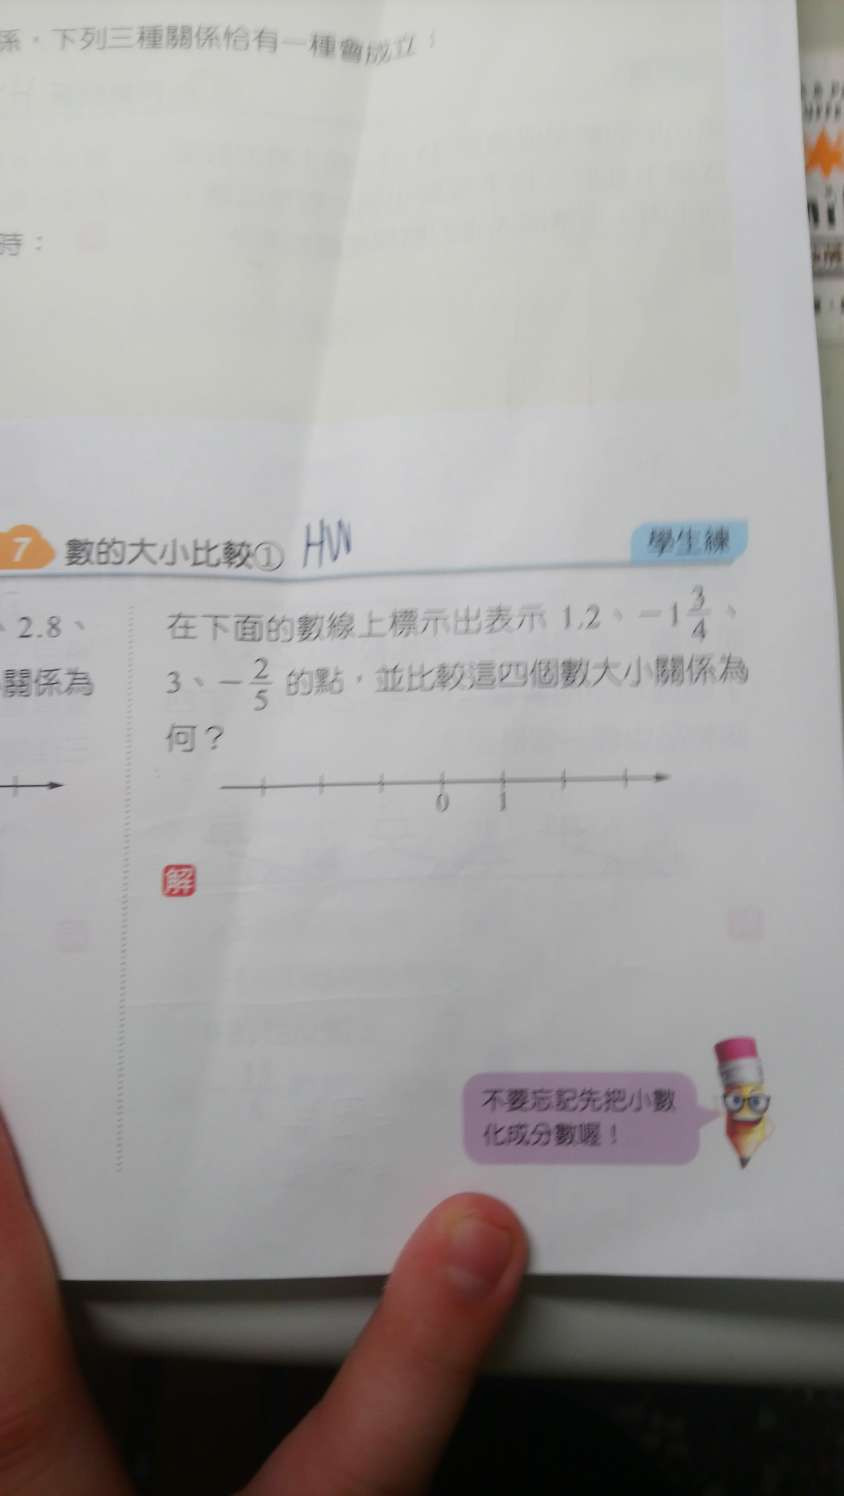 係，下列三種關係恰有一種會成立：
時：
7 數的大小比較① HW
學生練
、2.8、
關係為
在下面的數線上標示出表示 1.2、－1 3/4、
3、－2/5 的點，並比較這四個數大小關係為
何？
0 1
解
不要忘記先把小數
化成分數喔！